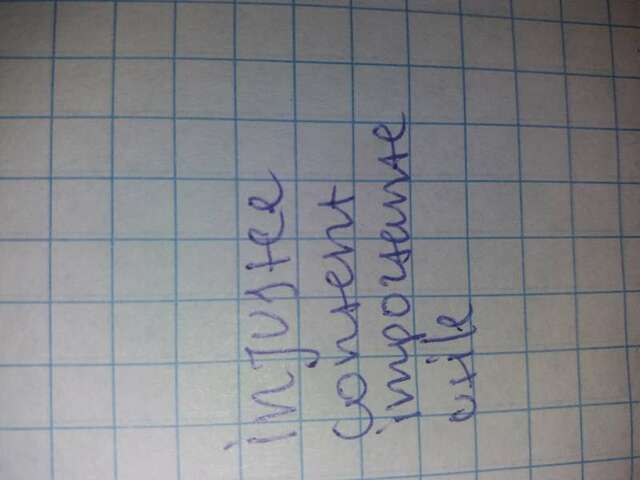 injustee
content
importante
utile